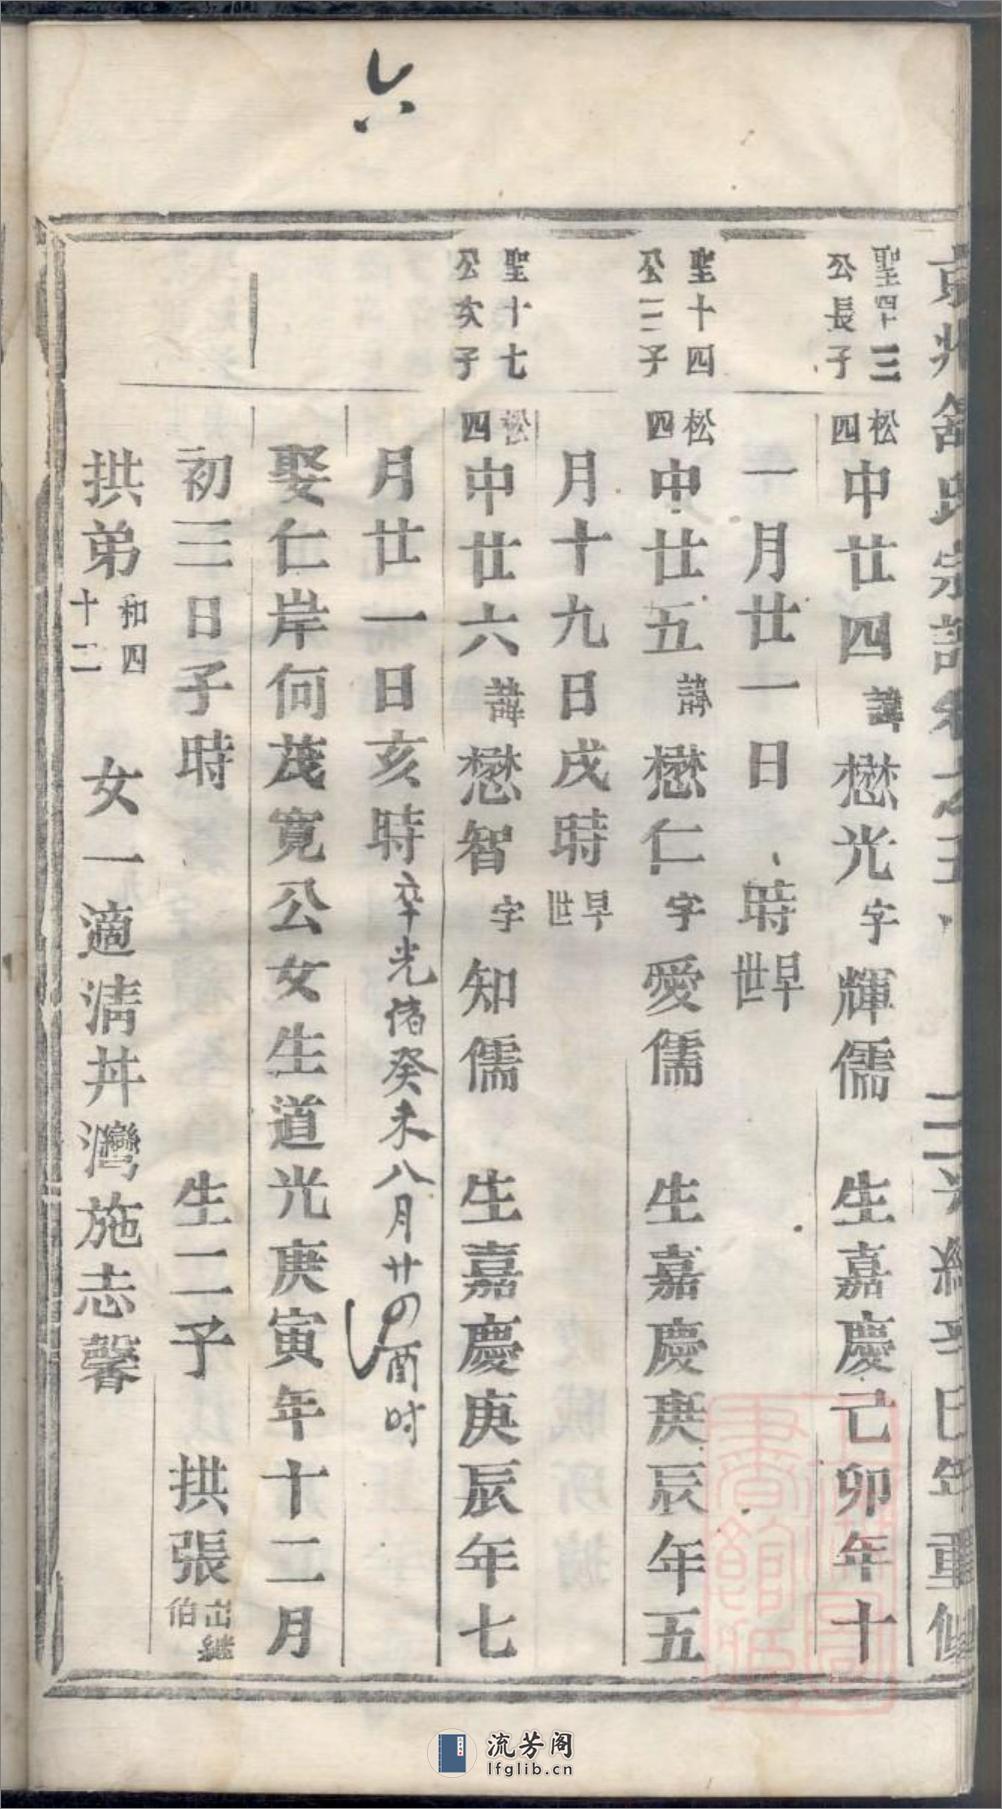 六
京兆舒氏宗譜卷之五　二　光緒辛巳年重修
聖四十三公長子
松四中廿四諱懋光字輝儒　生嘉慶己卯年十
一月廿一日　時早世
聖十四公二子
松四中廿五諱懋仁字愛儒　生嘉慶庚辰年五
月十九日戌時早世
聖十七公次子
松四中廿六諱懋智字知儒　生嘉慶庚辰年七
月廿一日亥時卒光緒癸未八月廿四酉时
娶仁岸何茂寬公女生道光庚寅年十二月
初三日子時　生二子　拱張出繼伯
拱弟和四十二　女一適清井灣施志馨
流芳阁
lfglib.cn